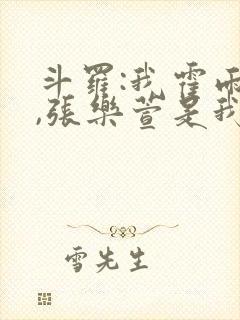 斗羅:我霍雨
,張樂萱是我
雪先生